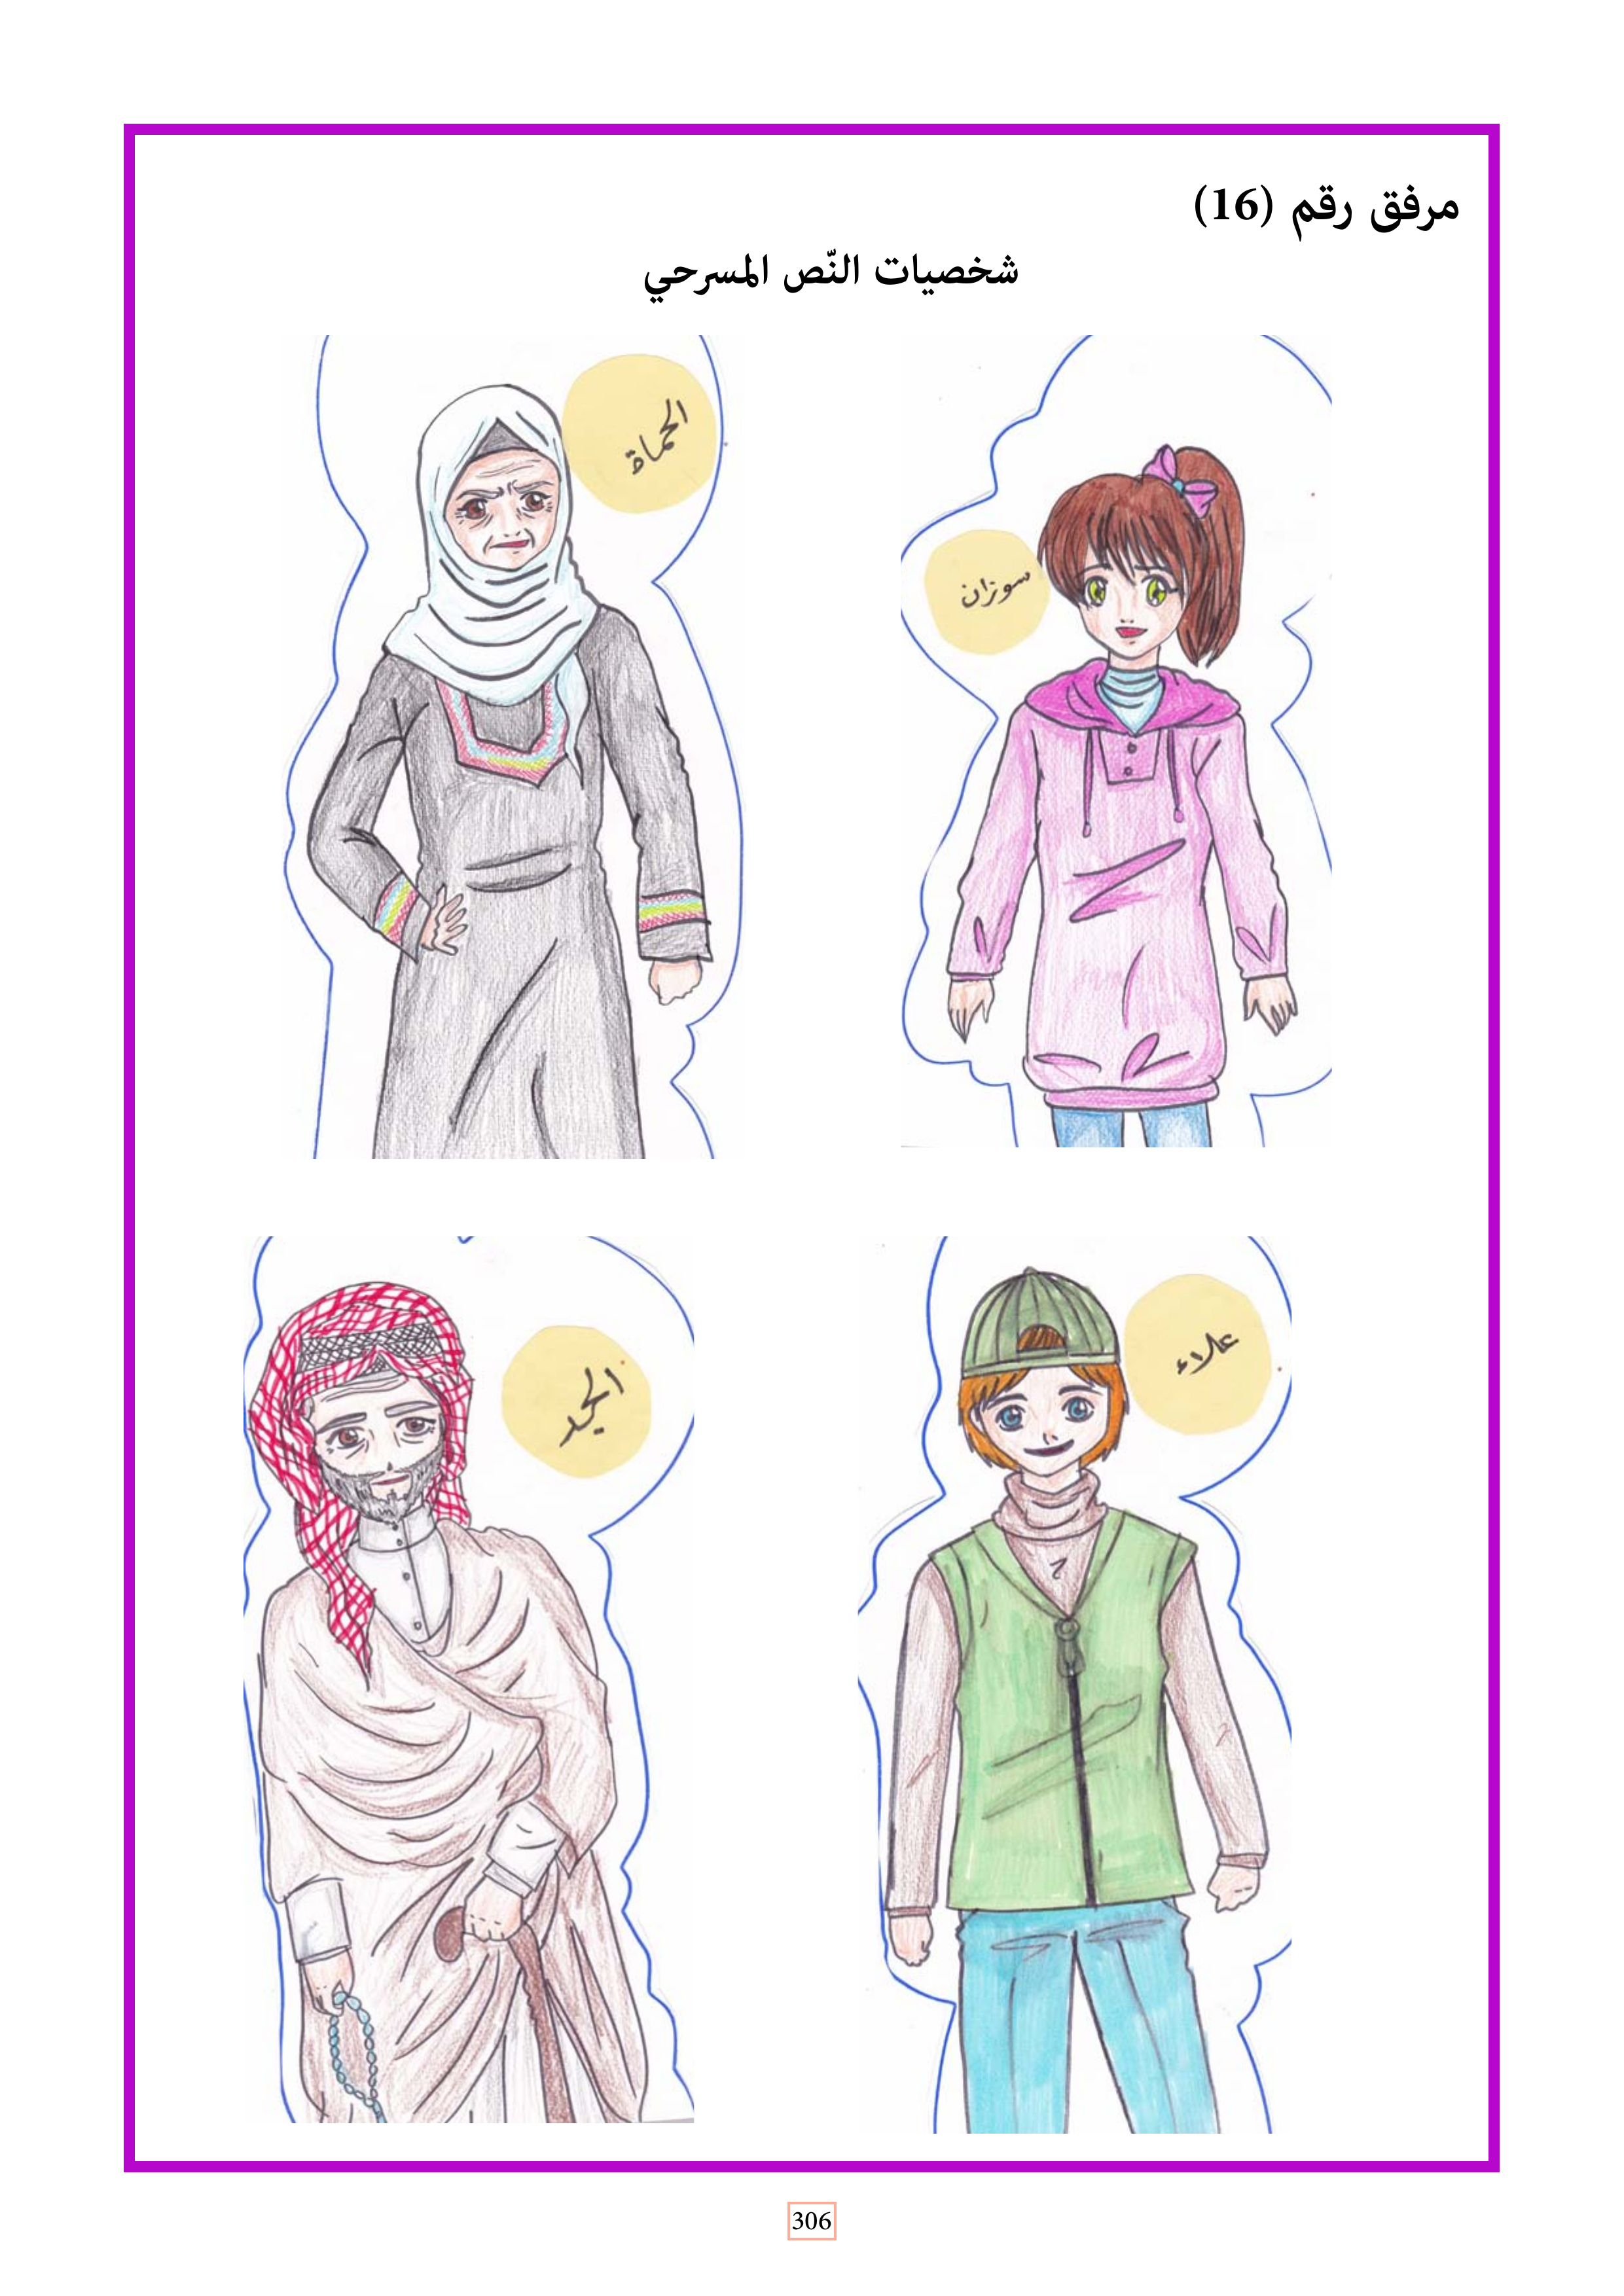 مرفق رقم (16)
شخصيات النّص المسرحي
سوزان
الحماة
علاء
الجد
306